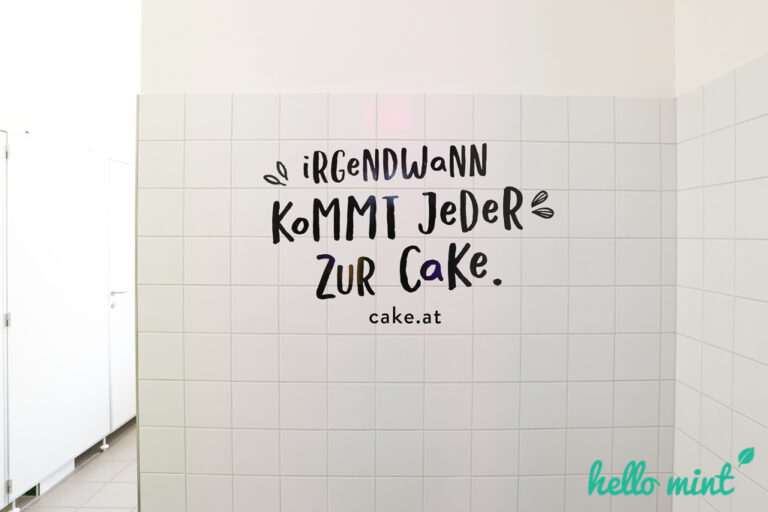 iRGeNDWaNN
KoMMT JeDeR
ZUR CaKe.
cake.at
hello mint